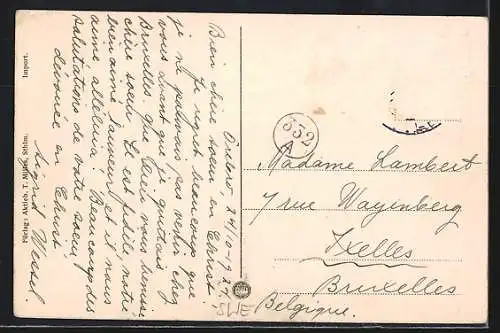 Örebro, 24/10-1927.
Bien chère soeur en Christ!
Je regret beaucoup que
je ne pouvais pas venir chez
vous avant que je quittais
Bruxelles. Que Dieu vous bénisse
chère soeur. Il est fidèle, notre
bien aimé Sauveur et il nous
aime, alléluia! Beaucoup des
salutations de votre soeur
dévouée en Christ
Sigrid Wessel.
Import.
Förlag: Aktieb. T. Sthlm.
332
A
Madame Lambert
7 rue Wayenberg
Ixelles
Bruxelles
Belgique.
SWE